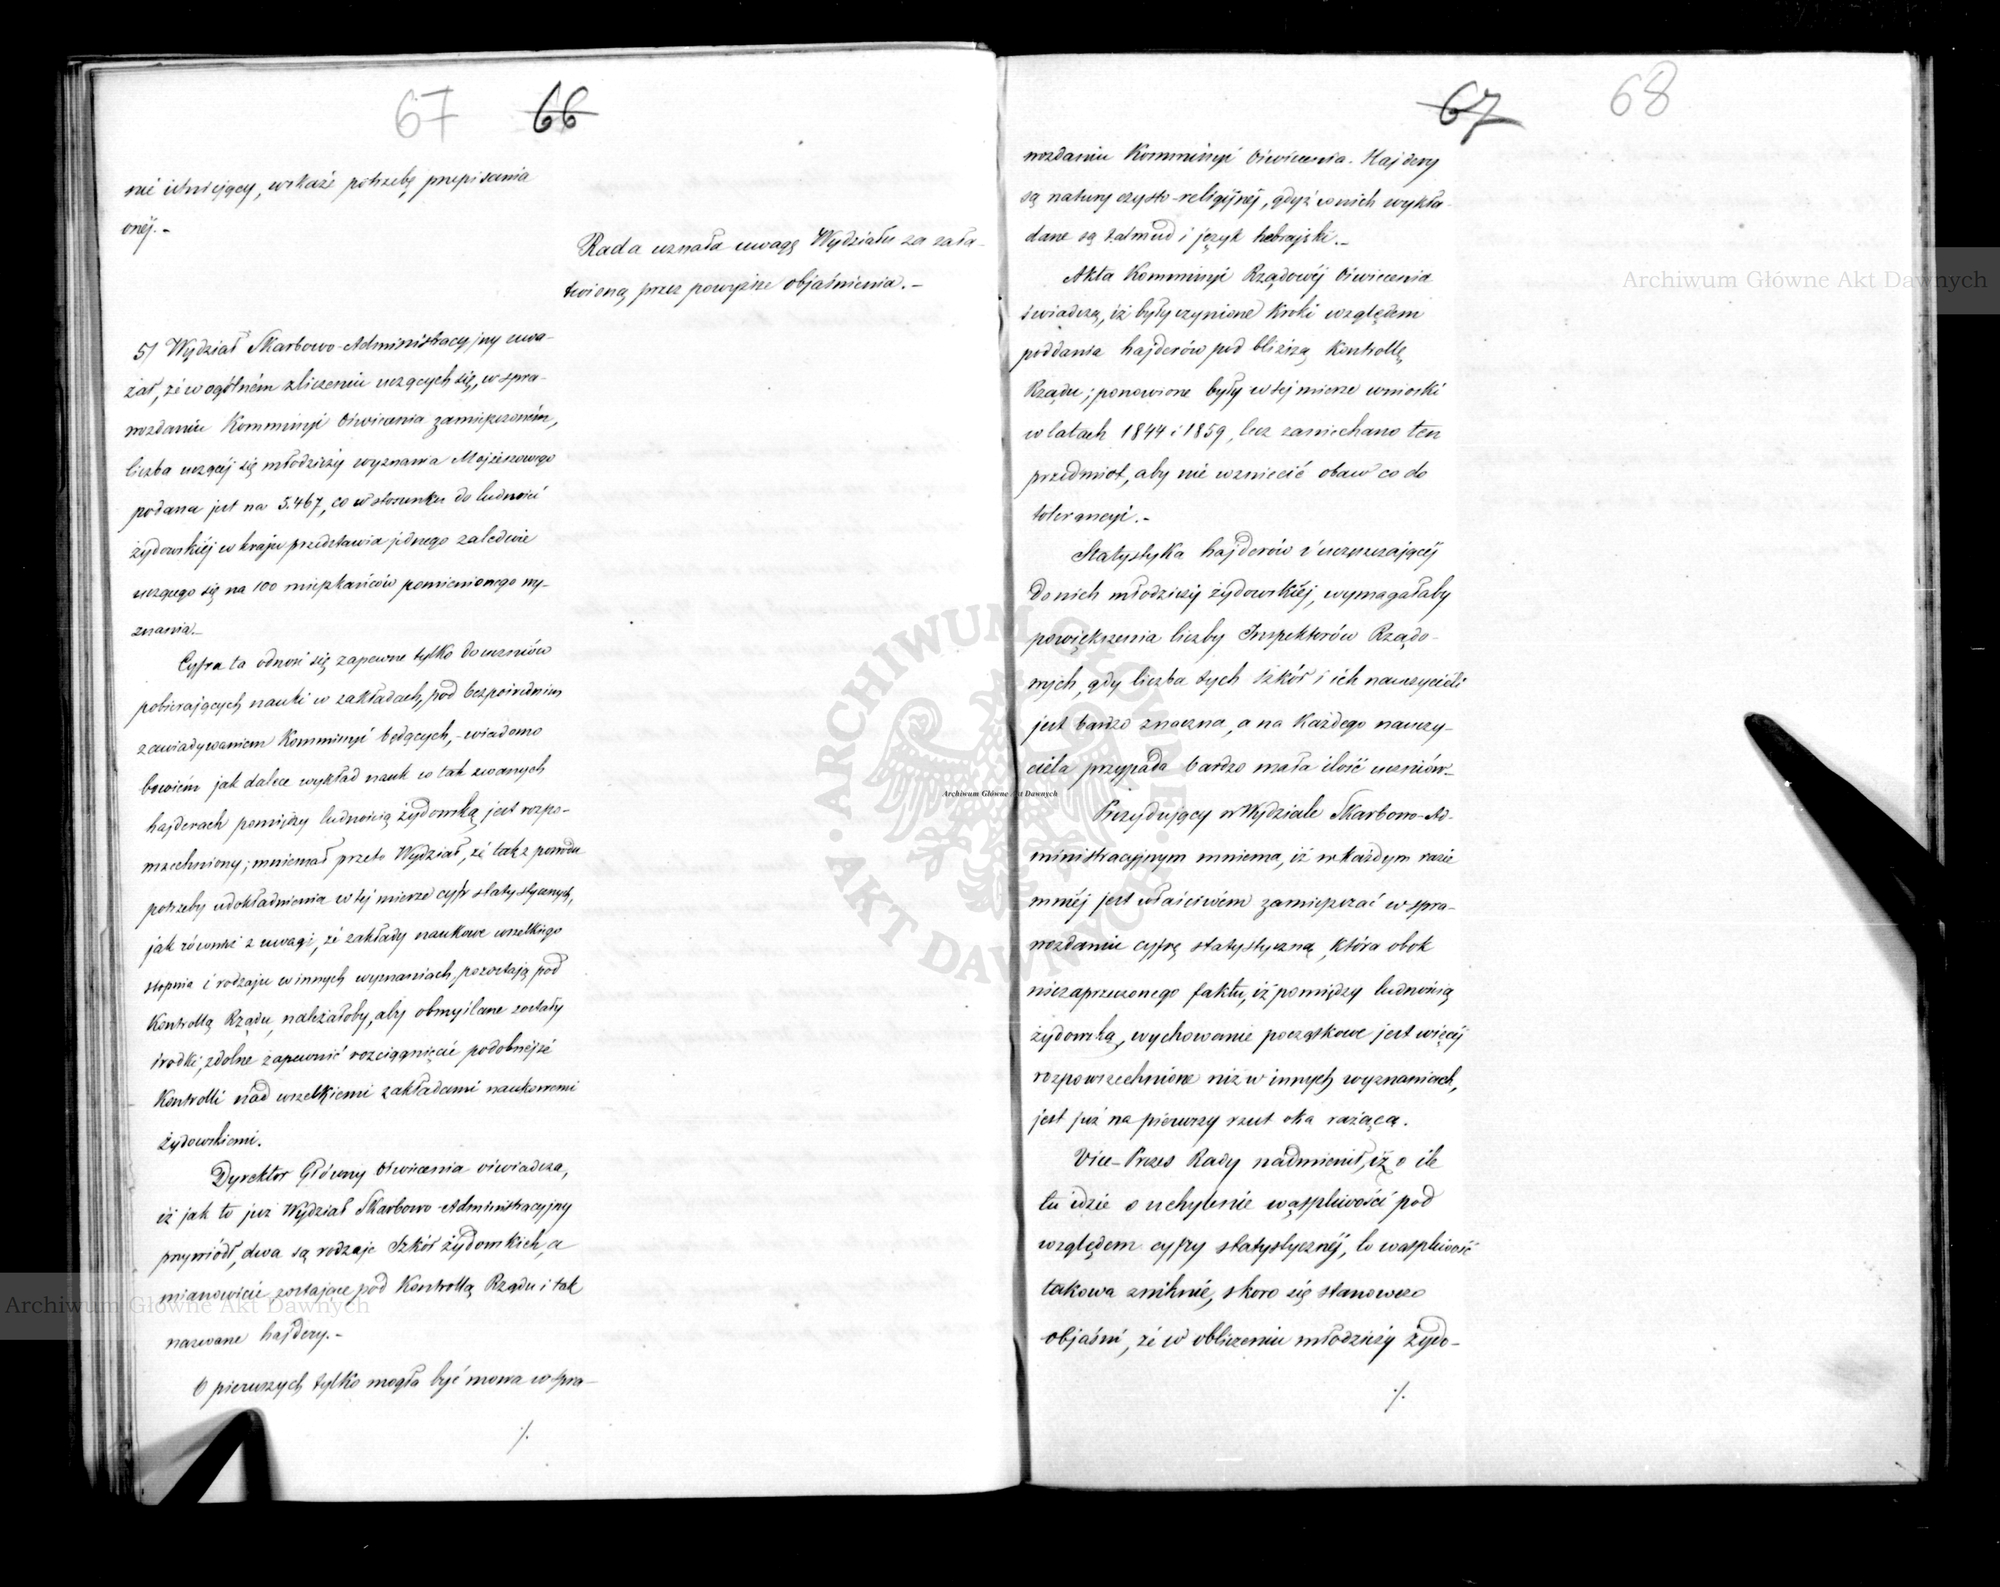 67 66
nie istniejący, wskaże potrzebę przepisania
onéj.-
Rada uznała uwagę Wydziału za zała-
twioną przez powyższe objaśnienia.-
5/ Wydział Skarbowo-Administracyjny uwa-
żał, że w ogólném zliczeniu uczących się, w spra-
wozdaniu Kommissyi Oświecenia zamieszczoném,
liczba uczącéj się młodzieży wyznania Mojżeszowego
podana jest na 5.467, co w stosunku do ludności
żydowskiéj w kraju przedstawia jednego zaledwie
uczącego się na 100 mieszkańców pomienionego wy-
znania.-
Cyfra ta odnosi się zapewne tylko do uczniów
pobierających nauki w zakładach, pod bezpośredniem
zawiadywaniem Kommissyi będących, - wiadomo
bowiem jak dalece wykład nauk w tak zwanych
hajderach pomiędzy ludnością żydowską jest rozpo-
wszechniony; mniemał przeto Wydział, że tak z powodu
potrzeby udokładnienia w téj mierze cyfr statystycznych,
jak również z uwagi, że zakłady naukowe wszelkiego
stopnia i rodzaju w innych wyznaniach, pozostają pod
Kontrollą Rządu, należałoby, aby obmyślane zostały
środki, zdolne zapewnić rozciągnięcie podobnéjże
Kontrolli nad wszelkiemi zakładami naukowemi
żydowskiemi.
Dyrektor Główny Oświecenia oświadcza,
iż jak to już Wydział Skarbowo-Administracyjny
przywiódł, dwa są rodzaje Szkół żydowskich, a
mianowicie zostające pod Kontrollą Rządu i tak
nazwane hajdery.-
O pierwszych tylko mogła być mowa w spra-
./.
67 68
wozdaniu Kommissyi Oświecenia. Hajdery
są natury czysto-religijnéj, gdyż w nich wykła-
dane są talmud i język hebrajski.-
Akta Kommissyi Rządowéj Oświecenia
świadczą, iż były czynione kroki względem
poddania hajderów pod bliższą Kontrollę
Rządu; ponowione były w téj mierze wnioski
w latach 1844 i 1859, lecz zaniechano ten
przedmiot, aby nie wzniecić obaw co do
tolerancyi.-
Statystyka hajderów i uczęszczającéj
do nich młodzieży żydowskiéj, wymagałaby
powiększenia liczby Inspektorów Rządo-
wych, gdy liczba tych szkół i ich nauczycieli
jest bardzo znaczna, a na każdego nauczy-
ciela przypada bardzo mała ilość uczniów.-
Prezydujący w Wydziale Skarbowo-Ad-
ministracyjnym mniema, iż w każdym razie
mniéj jest właściwém zamieszczać w spra-
wozdaniu cyfrę statystyczną, która obok
niezaprzeczonego faktu, iż pomiędzy ludnością
żydowską, wychowanie początkowe jest więcéj
rozpowszechnione niż w innych wyznaniach,
jest już na pierwszy rzut oka rażącą.
Vice-Prezes Rady nadmienił, iż o ile
tu idzie o uchylenie wątpliwości pod
względem cyfry statystycznéj, to wątpliwość
takowa zniknie, skoro się stanowczo
objaśni, że w obliczeniu młodzieży żydo-
./.
Archiwum Główne Akt Dawnych
Archiwum Główne Akt Dawnych
Archiwum Główne Akt Dawnych
ARCHIWUM GŁÓWNE · AKT DAWNYCH ·